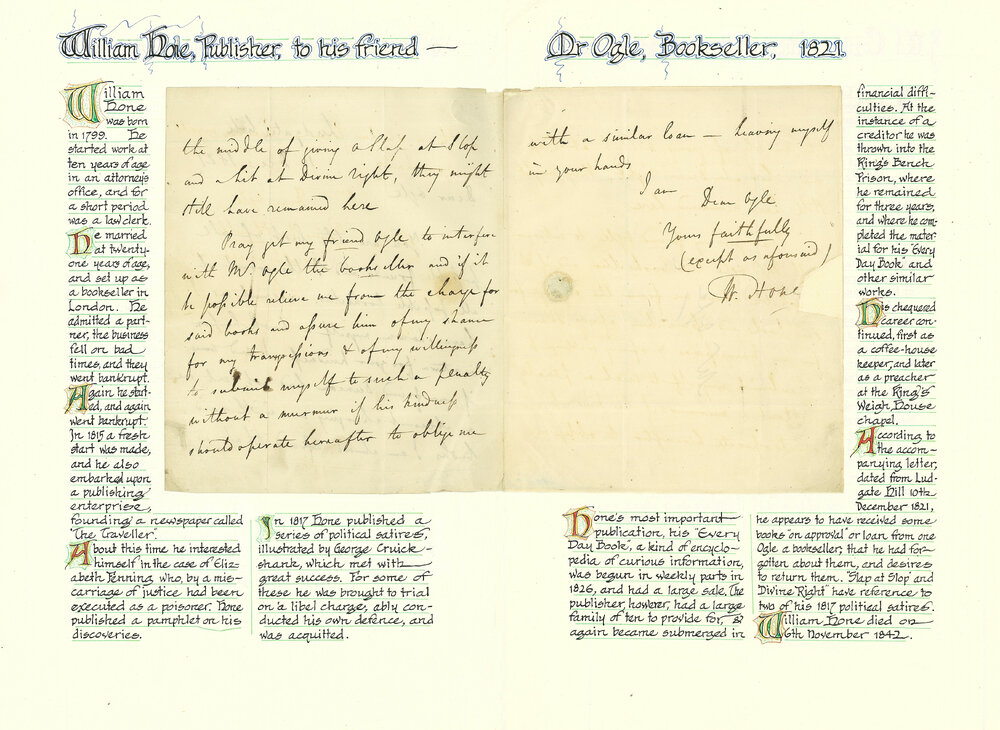 William Hone, Publisher, to his friend —
Mr Ogle, Bookseller, 1821.
William
Hone
was born
in 1799. He
started work at
ten years of age
in an attorney's
office, and for
a short period
was a law clerk.
He married
at twenty-
one years of age,
and set up as
a bookseller in
London. He
admitted a part-
ner, the business
fell on bad
times, and they
went bankrupt.
Again he start-
ed, and again
went bankrupt.
In 1815 a fresh
start was made,
and he also
embarked upon
a publishing
enterprise,
founding a newspaper called
"The Traveller".
About this time he interested
himself in the case of Eliz-
abeth Fenning who, by a mis-
carriage of justice had been
executed as a poisoner. Hone
published a pamphlet on his
discoveries.
In 1817 Hone published a
series of political satires,
illustrated by George Cruick-
shank, which met with
great success. For some of
these he was brought to trial
on a libel charge, ably con-
ducted his own defence, and
was acquitted.
the middle of giving a Slap at Slop
and a hit at Divine right, they might
still have remained here
Pray get my friend Ogle to interfere
with Mr. Ogle the bookseller and if it
be possible relieve me from the charge for
said books and assure him of my shame
for my transgressions & of my willingness
to submit myself to such a penalty
without a murmur if his kindness
should operate hereafter to oblige me
with a similar loan — leaving myself
in your hands
I am
Dear Ogle
Yours faithfully
(except as aforesaid)
W. Hone
Hone's most important
publication, his "Every
Day Book", a kind of encyclo-
pedia of curious information,
was begun in weekly parts in
1826, and had a large sale. The
publisher, however, had a large
family of ten to provide for, &
again became submerged in
financial diffi-
culties. At the
instance of a
creditor he was
thrown into the
King's Bench
Prison, where
he remained
for three years,
and where he com-
pleted the mater-
ial for his "Every
Day Book" and
other similar
works.
His chequered
career con-
tinued, first as
a coffee-house
keeper, and later
as a preacher
at the King's
Weigh House
chapel.
According to
the accom-
panying letter,
dated from Lud-
gate Hill 10th
December 1821,
he appears to have received some
books "on approval" or loan, from one
Ogle a bookseller; that he had for-
gotten about them, and desires
to return them. "Slap at Slop" and
Divine Right" have reference to
two of his 1817 political satires.
William Hone died on
6th November 1842.